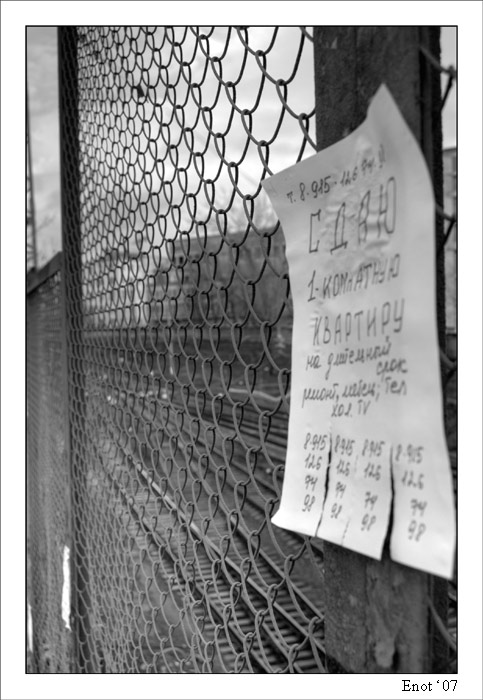 т. 8-915-126 74
СДАЮ
1-КОМНАТНУЮ
КВАРТИРУ
на длительный
срок
ремонт, мебель, Тел
хол. TV
8-915
126
74
98
8915
126
74
98
8915
126
74
98
8-915
126
74
98
Enot ‘07